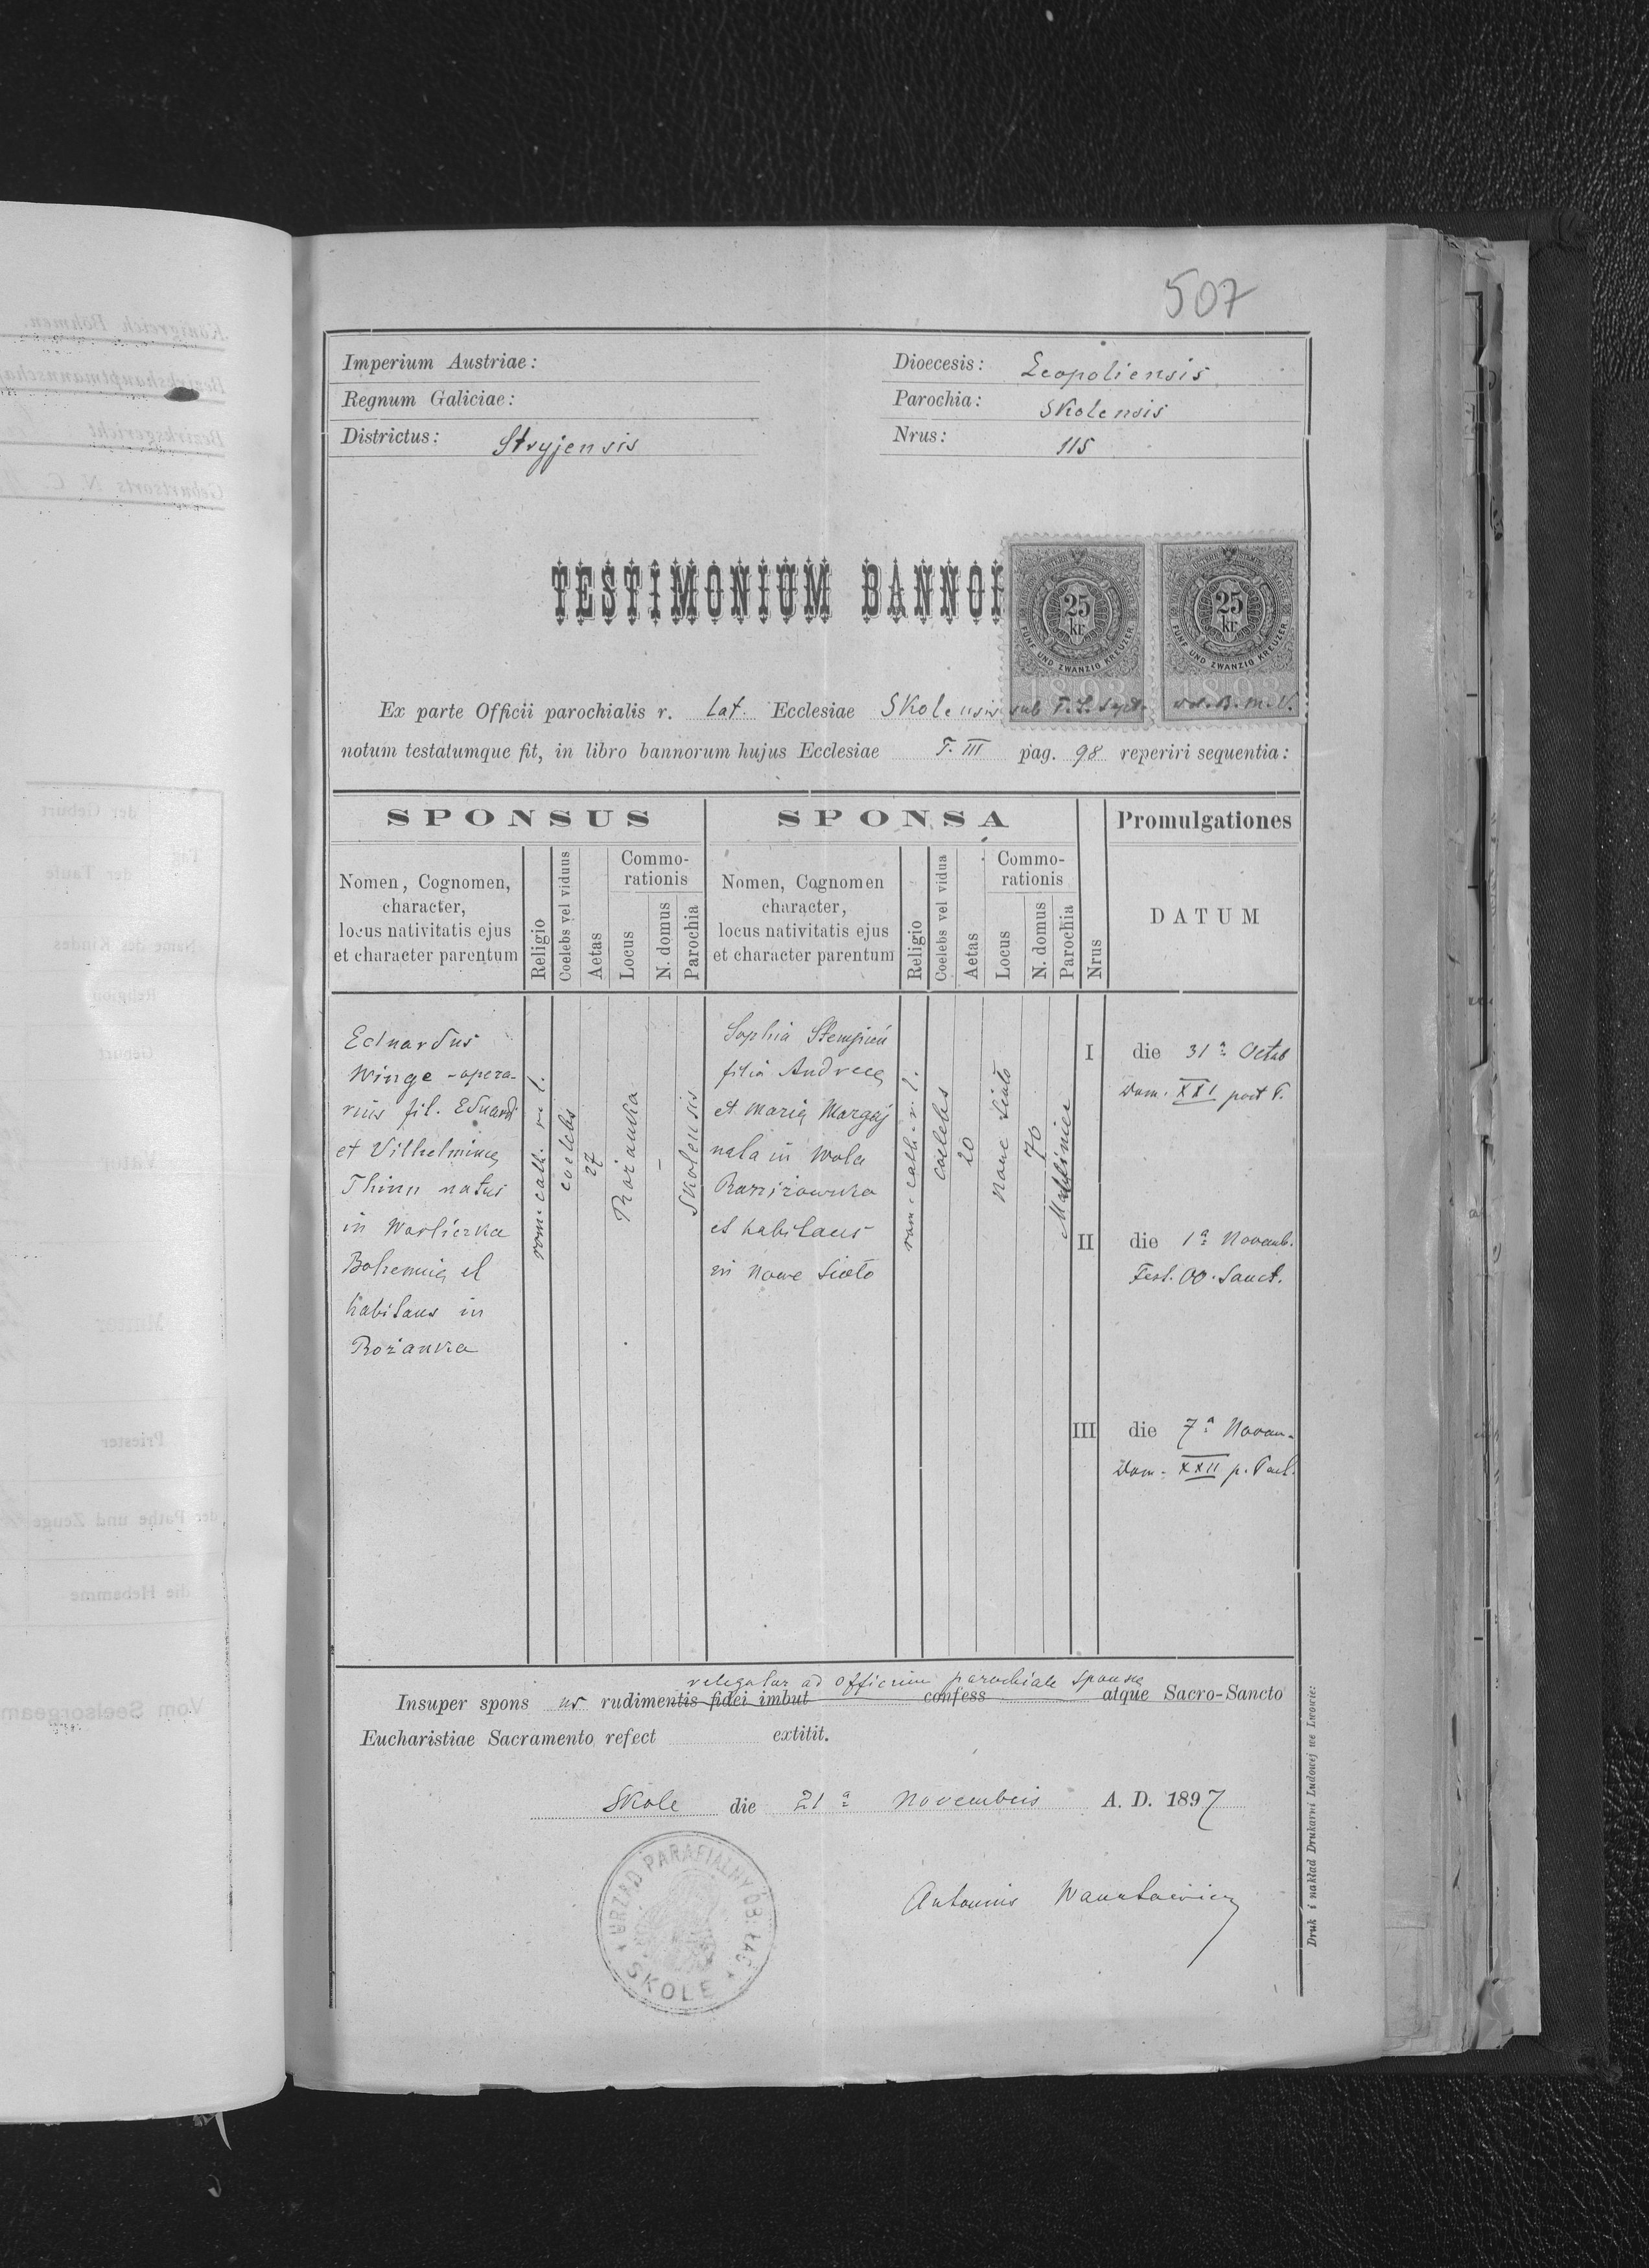 507
Imperium Austriae:
Regnum Galiciae:
Districtus: Stryjensis
Dioecesis: Leopoliensis
Parochia: Skolensis
Nrus: 115
TESTIMONIUM BANNO
25 kr
FÜNF UND ZWANZIG KREUZER
1893
25 kr
FÜNF UND ZWANZIG KREUZER
1893
Ex parte Officii parochialis r. Lat. Ecclesiae Skolensis sub T. B. M. V.
notum testatumque fit, in libro bannorum hujus Ecclesiae T. III pag. 98 reperiri sequentia:
SPONSUS
Nomen, Cognomen,
character,
locus nativitatis ejus
et character parentum
Religio
Coelebs vel viduus
Aetas
Commo-
rationis
Locus
N. domus
Parochia
SPONSA
Nomen, Cognomen
character,
locus nativitatis ejus
et character parentum
Religio
Coelebs vel vidua
Aetas
Commo-
rationis
Locus
N. domus
Parochia
Nrus
Promulgationes
DATUM
Eduardus
Winge - opera-
rius fil. Eduardi
et Vilhelmina
Thinn natus
in
Bohemia et
habitans in
Rożanka
rom. cath. r. l.
coelebs
27
Rożanka
-
Skolensis
Sophia Stempień
filia Andreae
et Maria Margaj
nata in Wola
Raniżowska
et habitans
in Nowe Sioło
rom. cath. r. l.
coelebs
20
Nowe Sioło
70
I die 31a Octob
Dom. XXI post P.
II die 1a Novemb.
Fest. OO. Sanct.
III die 7a Novem-
Dom. XXII p. Pent.
relegatur ad officium parochiale sponsae
Insuper spons us rudimentis fidei imbut confess atque Sacro-Sancto
Eucharistiae Sacramento refect extitit.
Skole die 21a Novembris A. D. 1897
Antonius
URZĄD PARAFIALNY OB. ŁAC
SKOLE
Druk i nakład Drukarni Ludowej we Lwowie: